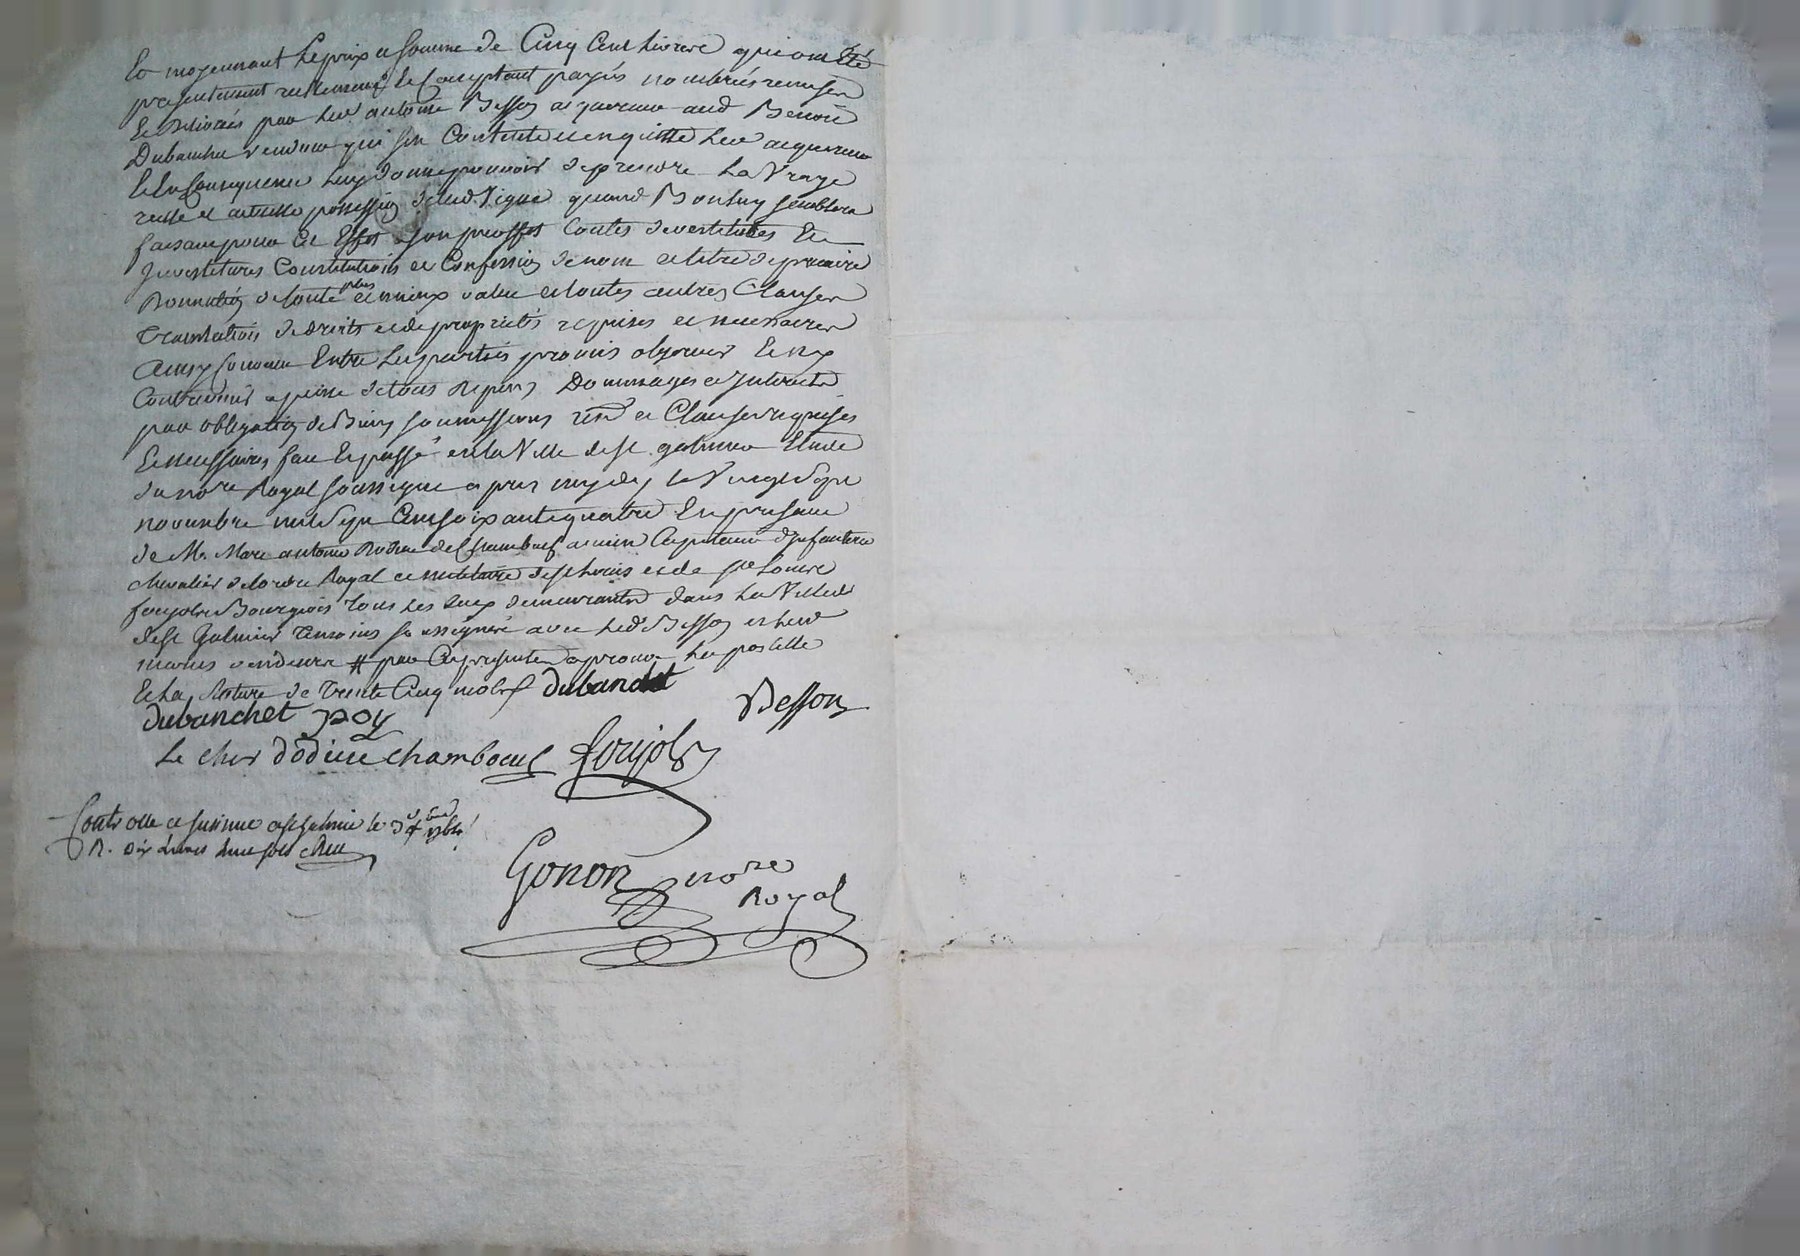 Et moyennant Le prix et somme de Cinq Cent livres qui ont Eté
presentement reellement et Comptant payés nombrés remises
Et Delivrés par led antoine Besson acquereur aud Benoit
Dubanchet vendeur qui sen Contente et en quitte led acquereur
Et En Consequence luy donne pouvoir de prendre La Vraye
reelle et actuelle possession de lad. Vigne quand Bon luy semblera
faisant pour Cet Effet a son proffit toutes devestitures Et
Investitures Constitutions et Confession de nom et titre de precaire
Donnation de toute plus et mieux value et toutes autres Clauses
translatives de droits et de proprietés requises et necessaires
ainsy Convenu Entre Les parties promis observer Et ny
Contrevenir a peine de tous depens Dommages et Interests
par obligation de Biens soumissions et Clauses requises
Et necessaires fait Et passé en la Ville de st galmier Etude
du no.re Royal soussigné apres midy le Vingt Sept
novembre mil Sept Cent soixante quatre En presence
de M.r Marc antoine de Chambœuf ancien Capitaine d'Infanterie
chevalier de lordre Royal et militaire de st Louis et de
foujols Bourgeois tous les deux demeurants dans La Ville
de st Galmier temoins soussignés avec led Besson et led
vendeur # par Ces presentes aprouve La postille
Et La rature de trente Cinq mots dubanchet
dubanchet poy Besson
Le cher dodieu chambœuf foujols
Controllé et insinué a st Galmier le
R. dix Livres
Gonon no.re
Royal